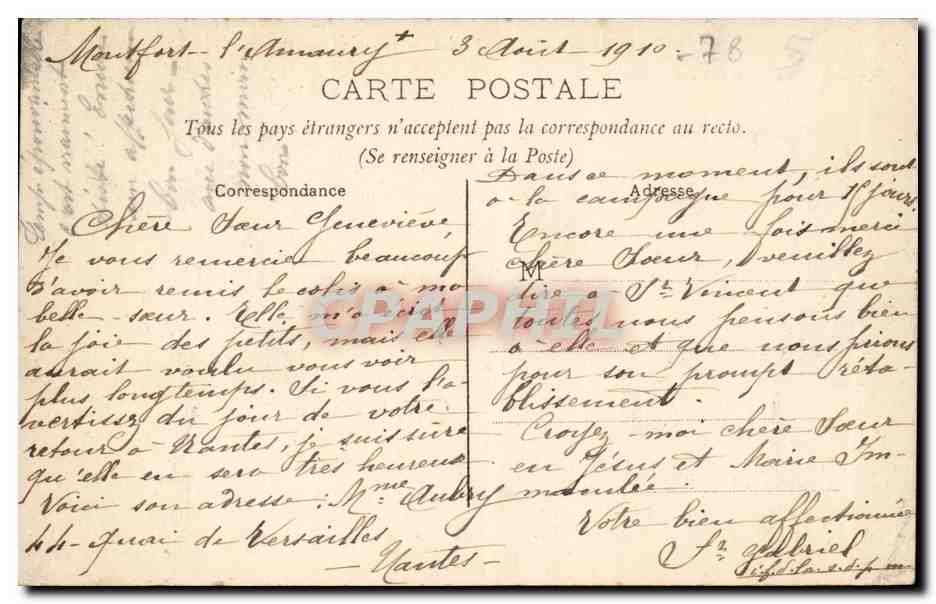 Montfort-l'Amaury + 3 Août 1910.
-78
5
CARTE POSTALE
Tous les pays étrangers n'acceptent pas la correspondance au recto.
(Se renseigner à la Poste)
Correspondance
Chère Sœur Geneviève,
Je vous remercie beaucoup
d'avoir remis le colis à ma
belle-sœur. Elle m'a écrit
la joie des petits, mais elle
aurait voulu vous voir
plus longtemps. Si vous l'a-
vertissez du jour de votre
retour à Nantes, je suis sûre
qu'elle en sera très heureuse
Voici son adresse : Mme Aubry
44- Quai de Versailles
-Nantes-
Adresse
M
Dans ce moment, ils sont
à la campagne pour 15 jours.
Encore une fois merci
chère Sœur, veuillez
dire à Sr Vincent que
toutes nous pensons bien
à elle et que nous prions
pour son prompt réta-
blissement.
Croyez-moi chère Sœur
en Jésus et Marie Im-
maculée.
Votre bien affectionnée
Sr Gabriel
i.f.d.l.a.s.d.p.m.
CPARHTI